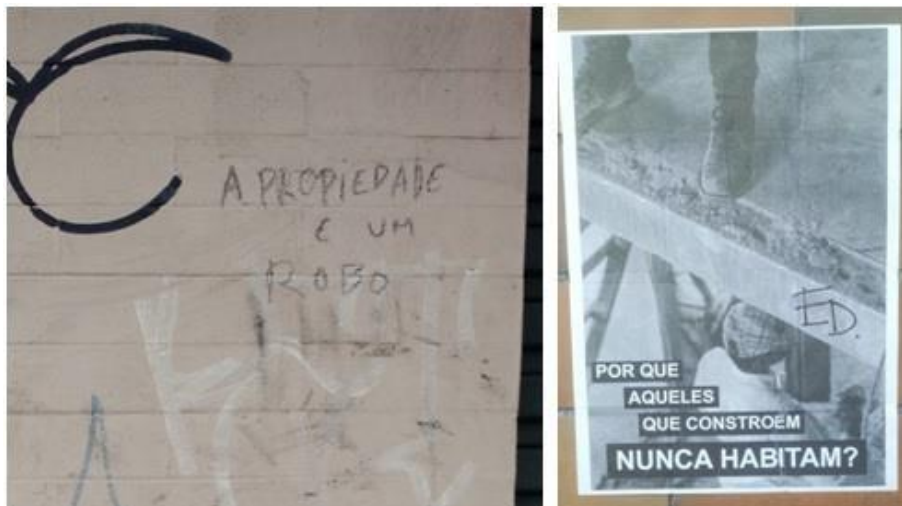 A PROPIEDADE
E UM
ROBO
ED.
POR QUE
AQUELES
QUE CONSTROEM
NUNCA HABITAM?